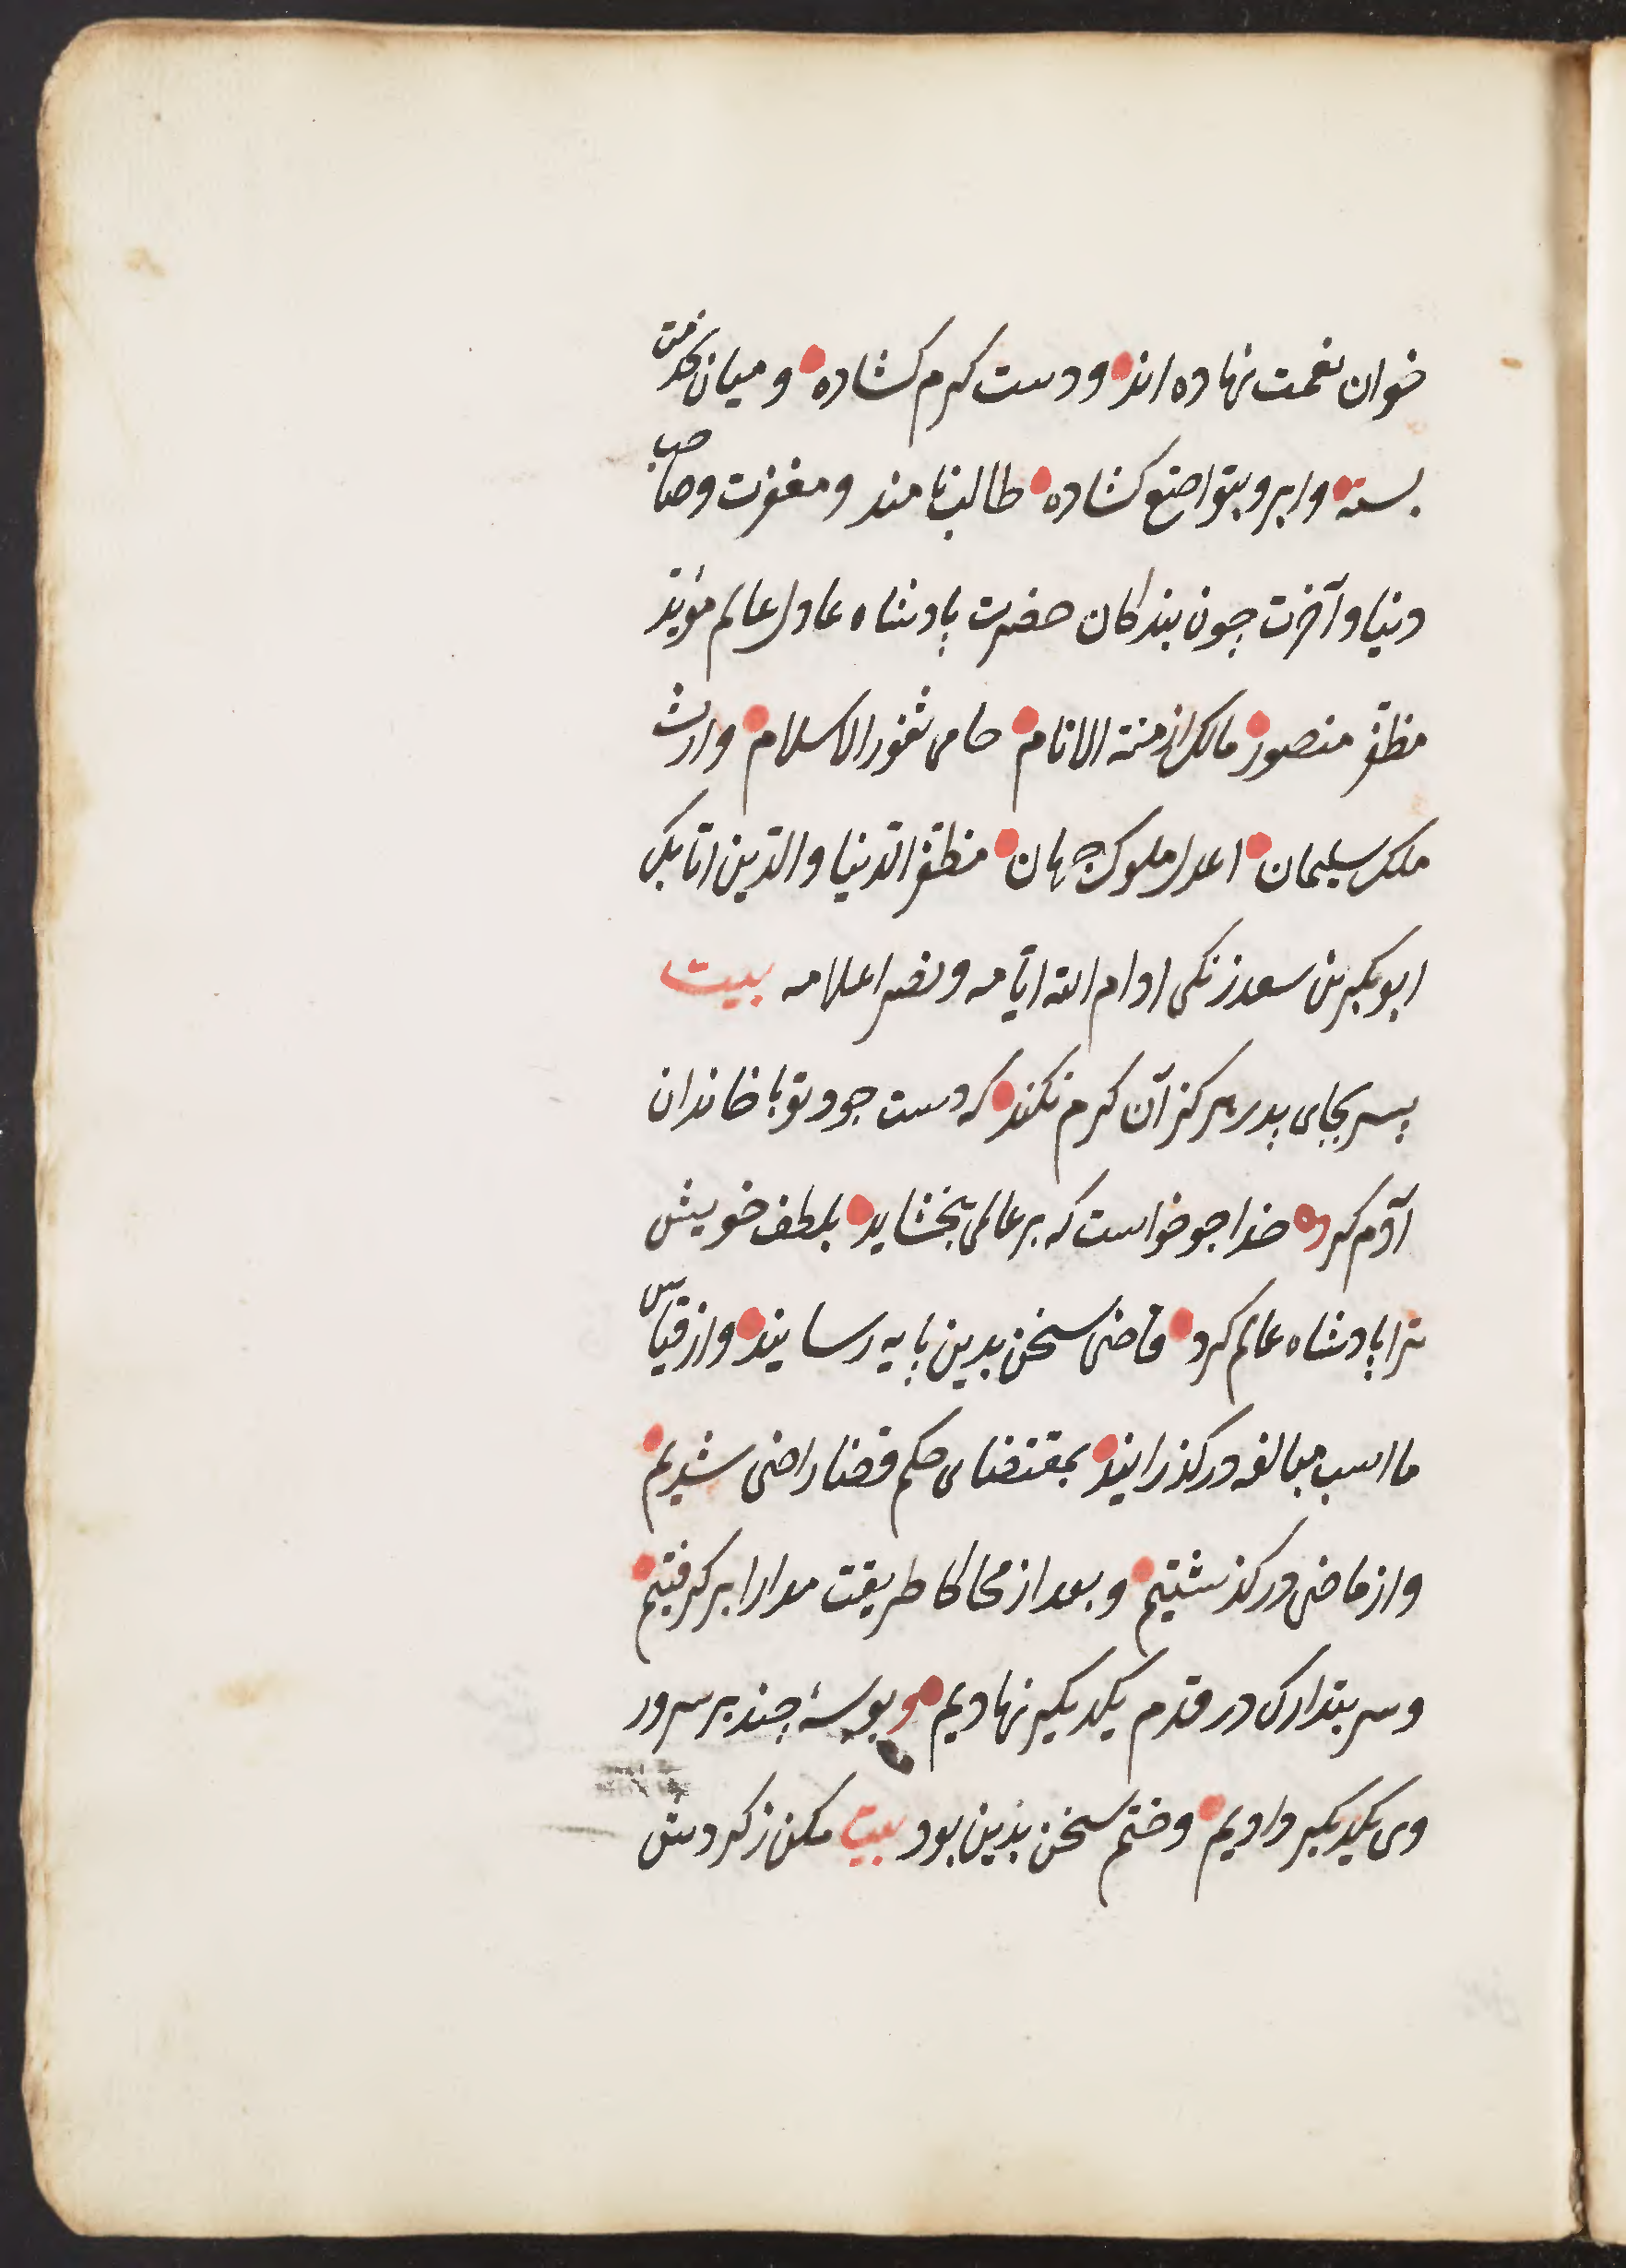 خوان نعمت نهاده اند و دست کرم کشاده و میان بخدمت
بسته وابرو بتواضع کشاده طالب نامند و مغفرت وصاحب
دنیا و آخرت چون بندکان حضرت پادشاه عادل عالم مؤید
مظفّر منصور مالک ازمنة الانام حامی ثغور الاسلام وارث
ملک سلیمان اعدل ملوک جهان مظفّر الدّنیا والدّین اتابک
ابوبکر بن سعد زنکی ادام الله ایّامه ونصر اعلامه بیت
پسر بجای پدر هرکز آن کرم نکند که دست جود تو با خاندان
آدم کرد خدا جو خواست که بر عالمی بخشاید بلطف خویش
ترا پادشاه عالم کرد قاضی سخن بدین پایه رسایند واز قیاس
ما اسب مبالغه درکذرانید بمقتضای حکم قضا راضی شدیم
واز ماضی درکذشتیم و بعد از محاکا طریقت مدارا برکرفتیم
وسر بتدارک در قدم یکدیکیر نهادیم و بوسهٔ چند بر سر ور
وی یکدیکیر دادیم وختم سخن بذین بود بیت مکن ز کردش